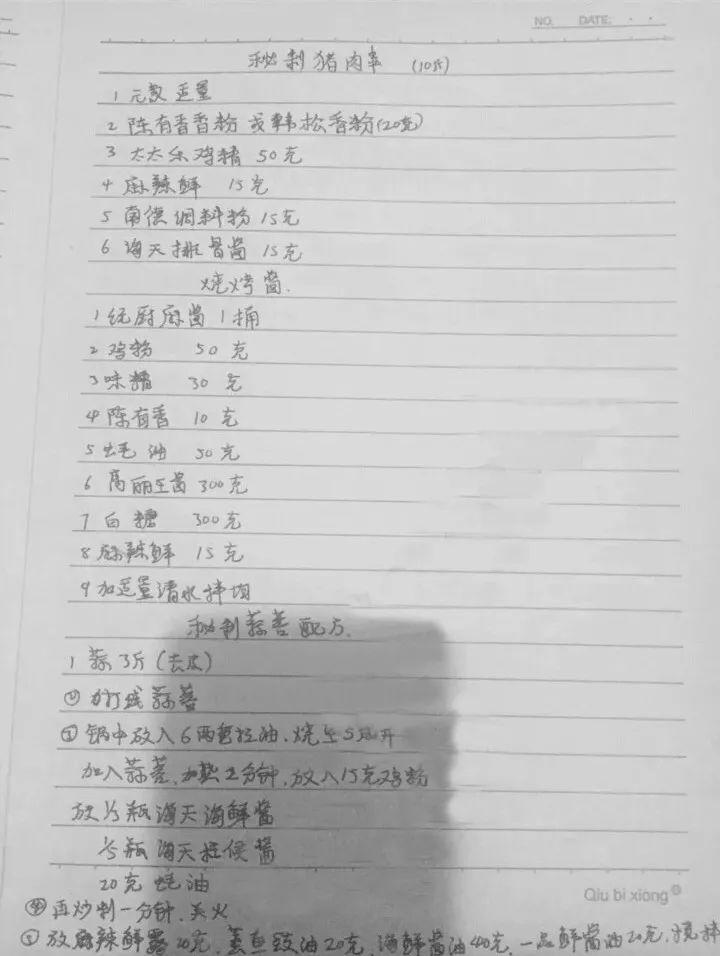 NO. DATE: · ·
秘制猪肉串 (10斤)
1 元教 适量
2 陈有香香粉 或韩松香粉(20克)
3 太太乐鸡精 50克
4 麻辣鲜 15克
5 南德调料粉 15克
6 海天排骨酱 15克
烧烤酱.
1 统厨麻酱 1桶
2 鸡粉 50克
3 味精 30克
4 陈有香 10克
5 蚝油 50克
6 高丽王酱 300克
7 白糖 300克
8 麻辣鲜 15克
9 加适量清水拌均
秘制蒜蓉配方.
1 蒜3斤(去皮)
② 打成蒜蓉
③ 锅中放入6两色拉油、烧至5成开
加入蒜蓉、加热2分钟、放入15克鸡粉
放⅓瓶海天海鲜酱
⅓瓶海天柱侯酱
20克 蚝油
④ 再炒制一分钟、关火
⑤ 放麻辣鲜露20克、蒸鱼豉油20克、海鲜酱油40克、一品鲜酱油20克、搅拌
Qiu bi xiong